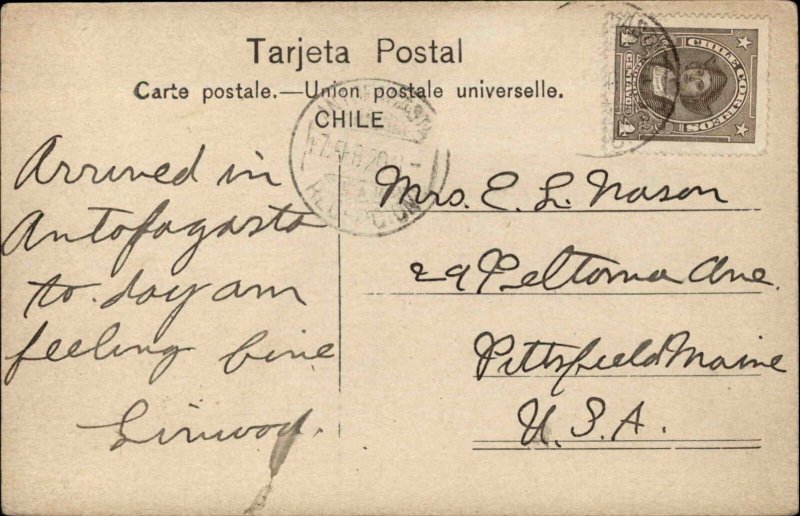 Tarjeta Postal
Carte postale.—Union postale universelle.
CHILE
CHILE CORREOS
4 CENTAVOS 4
RECEPCION
Arrived in
Antofagasta
to-day am
feeling fine
Linwood.
Mrs. E. L. Nason
29 Peltoma Ave.
Pittsfield Maine
U. S. A.